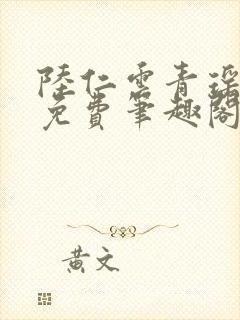 陸仁雲青瑶
免費筆趣閣
黃文